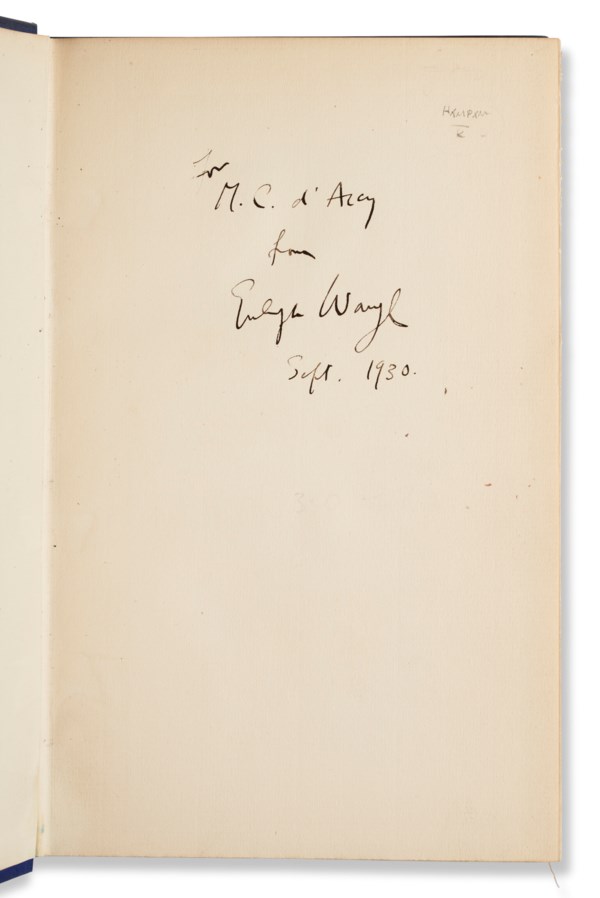 For
M. C. d'Arcy
from
Evelyn Waugh
Sept. 1930.